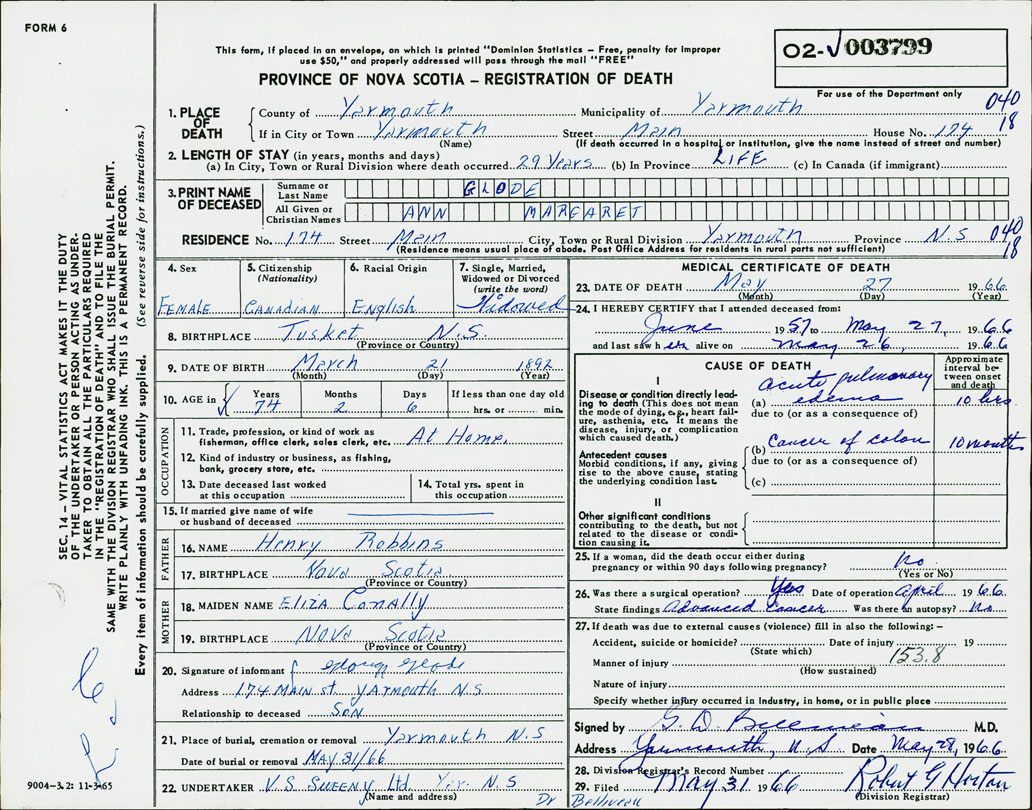 FORM 6
This form, if placed in an envelope, on which is printed "Dominion Statistics – Free, penalty for improper
use $50," and properly addressed will pass through the mail "FREE"
PROVINCE OF NOVA SCOTIA – REGISTRATION OF DEATH
02- 003799
For use of the Department only
040
18
1. PLACE OF DEATH
County of Yarmouth Municipality of Yarmouth
If in City or Town Yarmouth Street Main House No. 174
(Name) (If death occurred in a hospital or institution, give the name instead of street and number)
2. LENGTH OF STAY (in years, months and days)
(a) In City, Town or Rural Division where death occurred 29 Years (b) In Province LIFE (c) In Canada (if immigrant)
3. PRINT NAME OF DECEASED
Surname or Last Name GLODE
All Given or Christian Names ANN MARGARET
RESIDENCE No. 174 Street Main City, Town or Rural Division Yarmouth Province N.S
(Residence means usual place of abode. Post Office Address for residents in rural parts not sufficient)
040
18
4. Sex FEMALE
5. Citizenship (Nationality) CANADIAN
6. Racial Origin English
7. Single, Married, Widowed or Divorced (write the word) Widowed
8. BIRTHPLACE Tusket N.S.
(Province or Country)
9. DATE OF BIRTH March 21 1892
(Month) (Day) (Year)
10. AGE in Years 74 Months 2 Days 6 If less than one day old hrs. or min.
OCCUPATION
11. Trade, profession, or kind of work as
fisherman, office clerk, sales clerk, etc. At Home.
12. Kind of industry or business, as fishing,
bank, grocery store, etc.
13. Date deceased last worked
at this occupation
14. Total yrs. spent in
this occupation
15. If married give name of wife
or husband of deceased
FATHER
16. NAME Henry Robbins
17. BIRTHPLACE Nova Scotia
(Province or Country)
MOTHER
18. MAIDEN NAME ELIZA Conally
19. BIRTHPLACE Nova Scotia
(Province or Country)
20. Signature of informant
Address 174 MAIN st YARMOUTH N.S
Relationship to deceased SON
21. Place of burial, cremation or removal Yarmouth N.S
Date of burial or removal MAY 31/66
22. UNDERTAKER V.S SWEENY Ltd. Yar. N.S
(Name and address)
MEDICAL CERTIFICATE OF DEATH
23. DATE OF DEATH May 27 1966
(Month) (Day) (Year)
24. I HEREBY CERTIFY that I attended deceased from:
June 1957 to May 27, 1966
and last saw h er alive on May 26, 1966
CAUSE OF DEATH
Approximate interval between onset and death
I
Disease or condition directly leading
to death (This does not mean
the mode of dying, e.g., heart failure,
asthenia, etc. It means the
disease, injury, or complication
which caused death.)
acute pulmonary
(a) edema 10 hrs
due to (or as a consequence of)
(b) Cancer of colon 10 months
due to (or as a consequence of)
(c)
Antecedent causes
Morbid conditions, if any, giving
rise to the above cause, stating
the underlying condition last.
II
Other significant conditions
contributing to the death, but not
related to the disease or condition
causing it.
25. If a woman, did the death occur either during
pregnancy or within 90 days following pregnancy? No
(Yes or No)
26. Was there a surgical operation? Yes Date of operation April 1966
State findings Advanced Cancer Was there an autopsy? No
27. If death was due to external causes (violence) fill in also the following: –
Accident, suicide or homicide? Date of injury 19
(State which)
153.8
Manner of injury
(How sustained)
Nature of injury
Specify whether injury occurred in industry, in home, or in public place
Signed by G. D. M.D.
Address Yarmouth, N.S Date May 28, 1966
28. Division Registrar's Record Number
29. Filed May 31 1966 Robert G Horton
(Division Registrar)
Dr Belliveau
9004-3.2: 11-3-65
SEC. 14 – VITAL STATISTICS ACT MAKES IT THE DUTY
OF THE UNDERTAKER OR PERSON ACTING AS UNDERTAKER
TO OBTAIN ALL THE PARTICULARS REQUIRED
IN THE "REGISTRATION OF DEATH" AND TO FILE THE
SAME WITH THE DIVISION REGISTRAR WHO SHALL ISSUE THE BURIAL PERMIT.
WRITE PLAINLY WITH UNFADING INK. THIS IS A PERMANENT RECORD.
Every item of information should be carefully supplied. (See reverse side for instructions.)